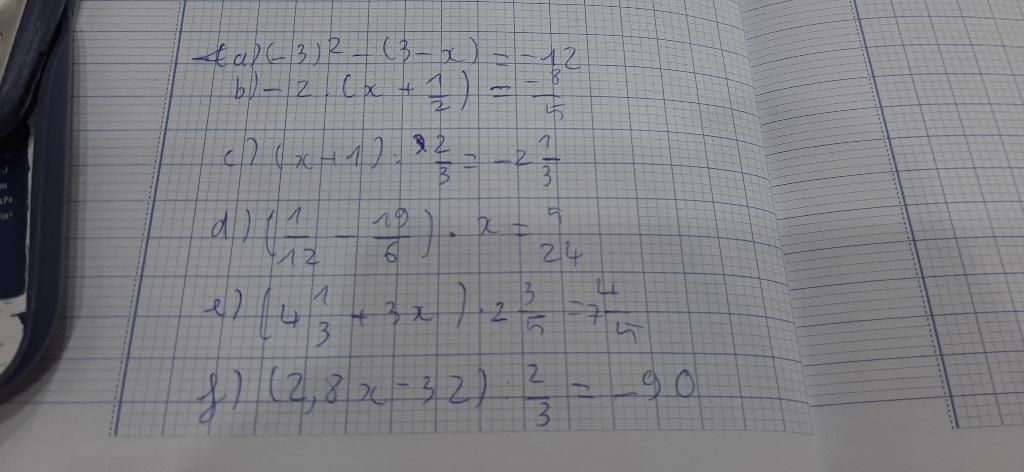 a) (-3)² - (3 - x) = -12
b) - 2 . (x + 1/2) = -8/5
c) (x + 1) : 2/3 = -2 1/3
d) (1/12 - 19/6) . x = 5/24
e) (4 1/3 + 3x) . 2 3/5 = 7 4/5
f) (2,8x - 32) : 2/3 = -90